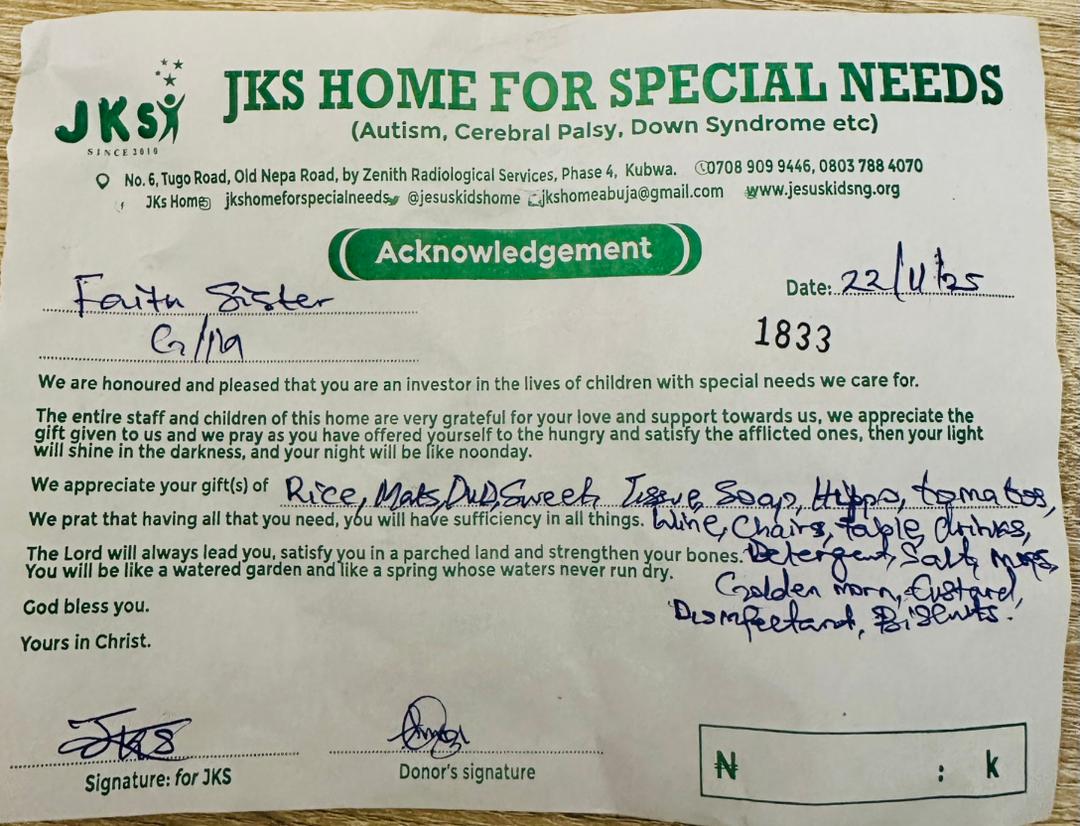 JKS
SINCE 2010
JKS HOME FOR SPECIAL NEEDS
(Autism, Cerebral Palsy, Down Syndrome etc)
No. 6, Tugo Road, Old Nepa Road, by Zenith Radiological Services, Phase 4, Kubwa. 0708 909 9446, 0803 788 4070
JKs Home jkshomeforspecialneeds @jesuskidshome jkshomeabuja@gmail.com www.jesuskidsng.org
Acknowledgement
Faith Sister
Date: 22/11/25
1833
We are honoured and pleased that you are an investor in the lives of children with special needs we care for.
The entire staff and children of this home are very grateful for your love and support towards us, we appreciate the
gift given to us and we pray as you have offered yourself to the hungry and satisfy the afflicted ones, then your light
will shine in the darkness, and your night will be like noonday.
We appreciate your gift(s) of Rice, Mats, Sweet, Tissue, Soap, Hypo, tomatoes,
We prat that having all that you need, you will have sufficiency in all things. Wine, Chairs, table, drinks,
The Lord will always lead you, satisfy you in a parched land and strengthen your bones. Detergent, Salt, mops,
You will be like a watered garden and like a spring whose waters never run dry.
Golden morn, Custard,
God bless you.
Biscuits.
Yours in Christ.
JKS
Signature: for JKS
Donor's signature
₦ : k